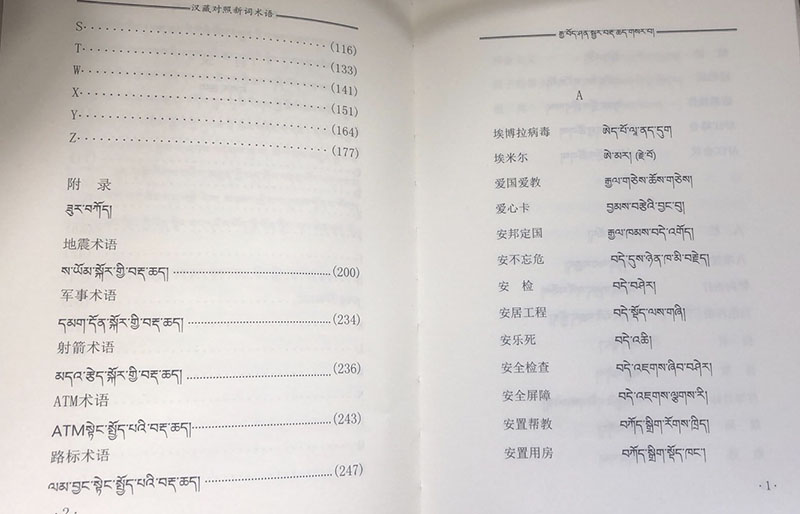 汉藏对照新词术语
S (116)
T (133)
W (141)
X (151)
Y (164)
Z (177)
附 录
ཟུར་བཀོད།
地震术语
ས་ཡོམ་སྐོར་གྱི་བརྡ་ཆད། (200)
军事术语
དམག་དོན་སྐོར་གྱི་བརྡ་ཆད། (234)
射箭术语
མདའ་རྩེད་སྐོར་གྱི་བརྡ་ཆད། (236)
ATM术语
ATMསྟེང་སྤྱོད་པའི་བརྡ་ཆད། (243)
路标术语
ལམ་བྱང་སྟེང་སྤྱོད་པའི་བརྡ་ཆད། (247)
·2·
རྒྱ་བོད་ཤན་སྦྱར་བརྡ་ཆད་གསར་བ།
A
埃博拉病毒 ཨེད་པོ་ལཱ་ནད་དུག
埃米尔 ཨེ་མར། (རྗེ་བོ)
爱国爱教 རྒྱལ་གཅེས་ཆོས་གཅེས།
爱心卡 བྱམས་བརྩེའི་བྱང་བུ།
安邦定国 རྒྱལ་ཁམས་བདེ་འགོད།
安不忘危 བདེ་དུས་ཉེན་ཁ་མི་བརྗེད།
安 检 བདེ་བཤེར།
安居工程 བདེ་སྡོད་ལས་གཞི།
安乐死 བདེ་འཆི།
安全检查 བདེ་འཇགས་ཞིབ་བཤེར།
安全屏障 བདེ་འཇགས་ལྕགས་རི།
安置帮教 བཀོད་སྒྲིག་རོགས་ཁྲིད།
安置用房 བཀོད་སྒྲིག་སྡོད་ཁང་།
·1·